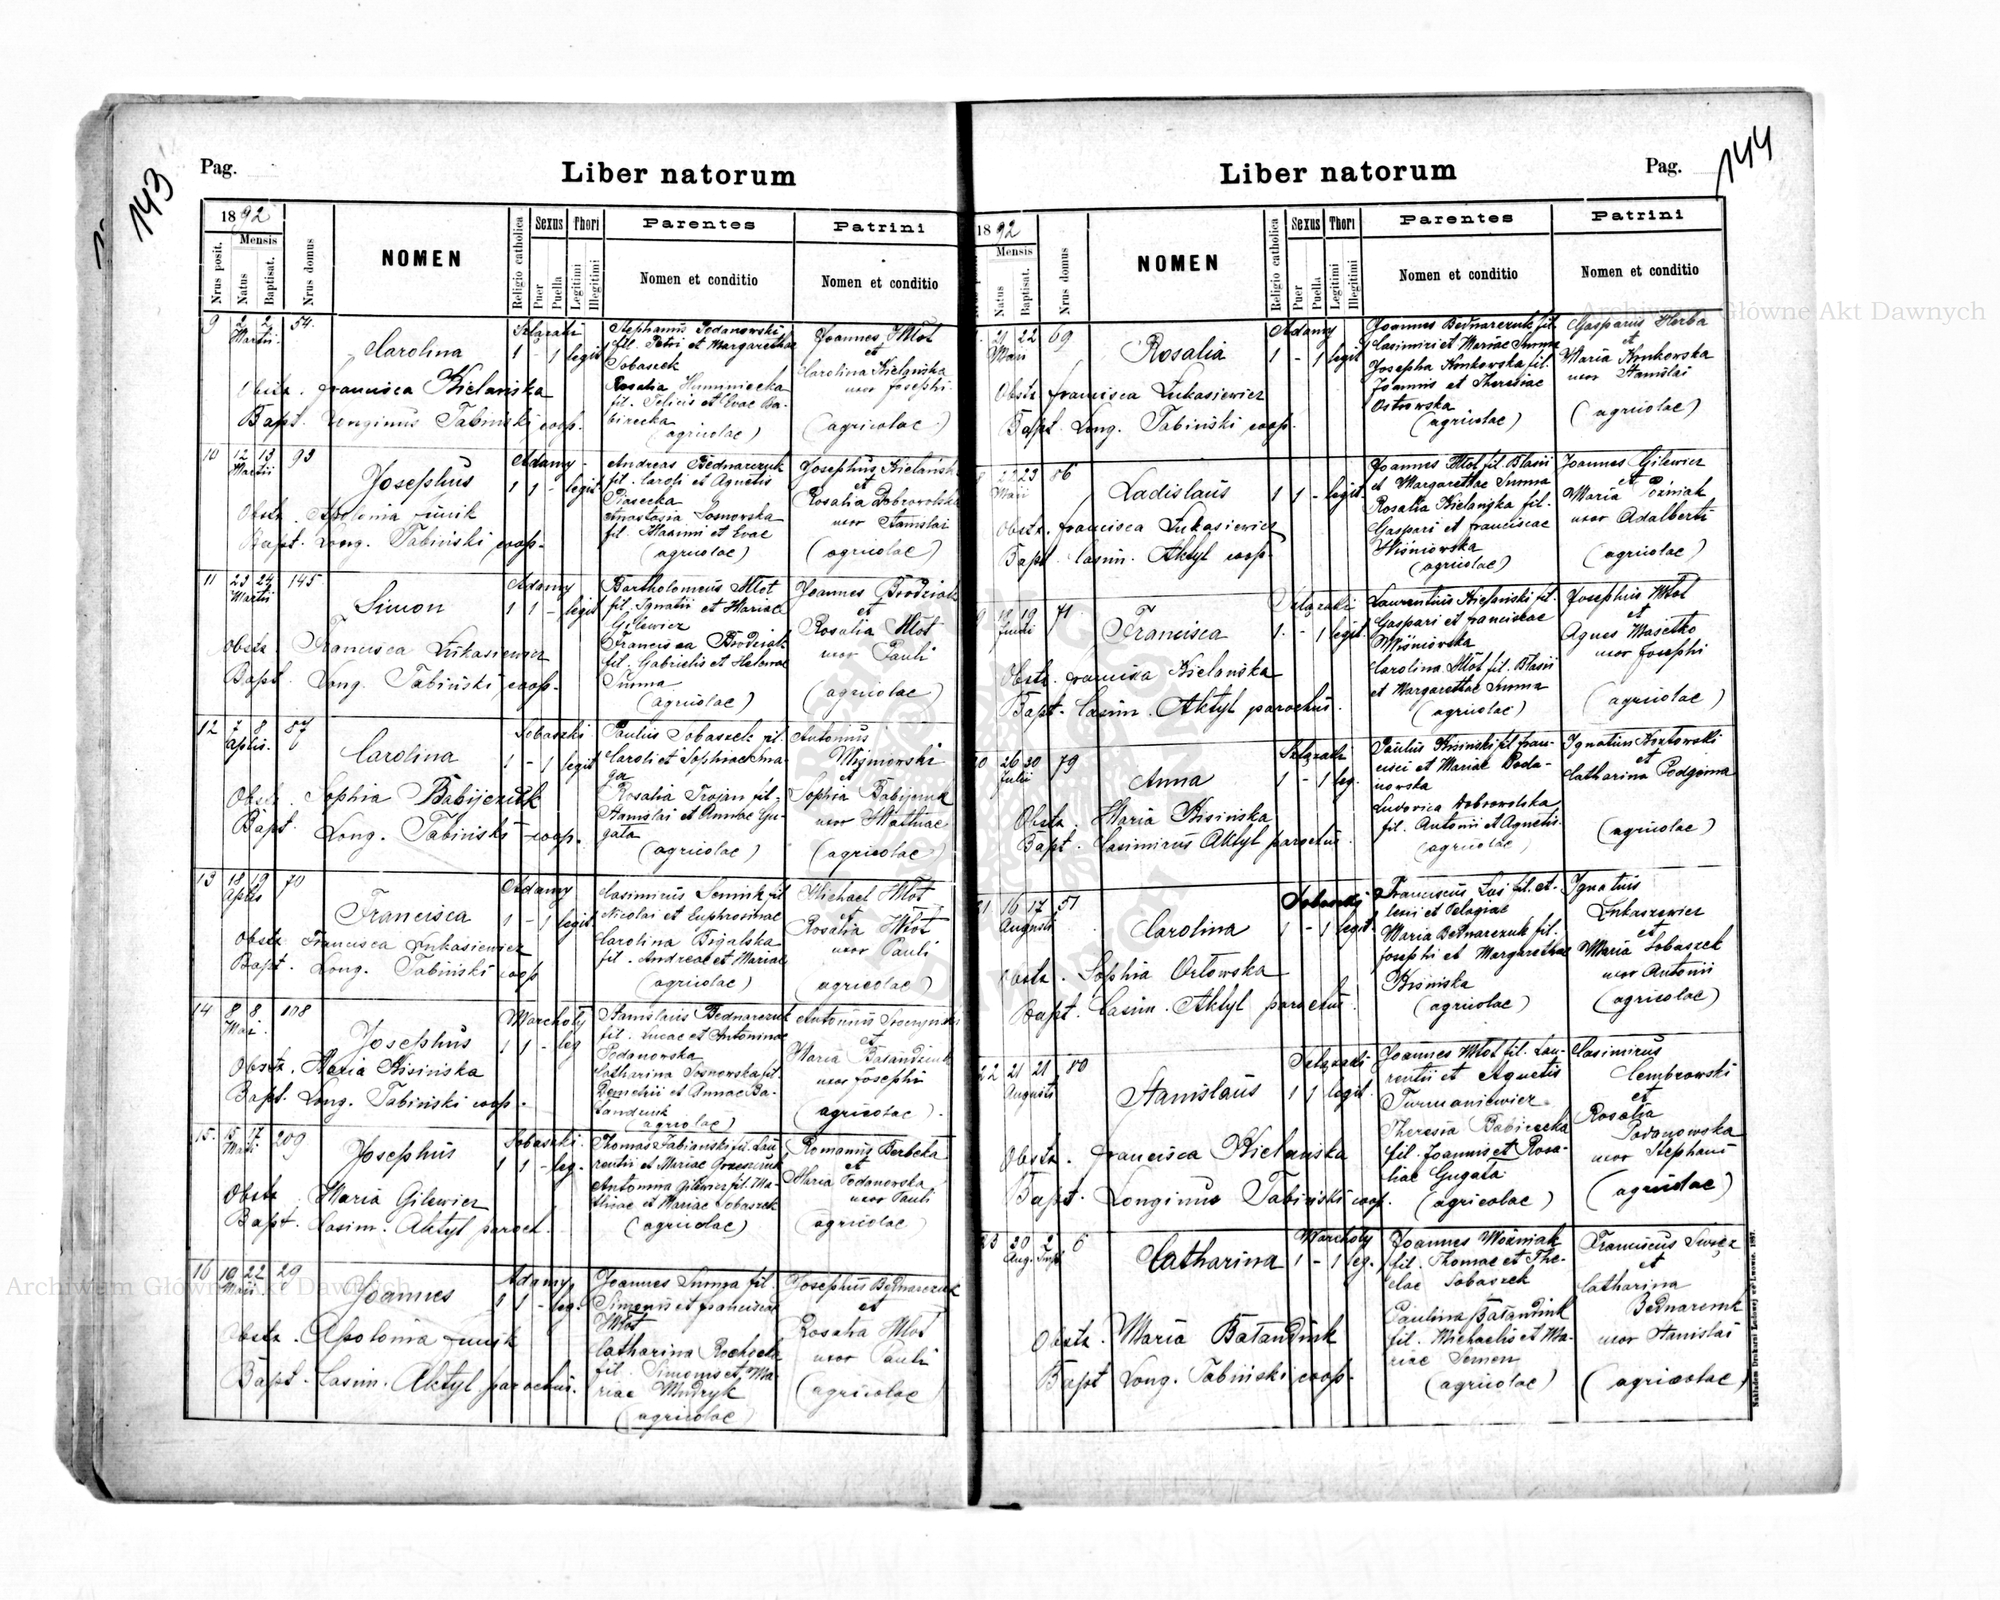 143
Pag.
Liber natorum
1892
Mensis
Nrus posit.
Natus
Baptisat.
Nrus domus
NOMEN
Religio catholica
Sexus
Puer
Puella
Thori
Legitimi
Illegitimi
Parentes
Nomen et conditio
Patrini
Nomen et conditio
9 2 2 54.
Martii
Carolina
1 - 1 legit
Obstr. Francisca Kielańska
Bapt. Longinus Tabiński coop.
Stephanus Podanowski
fil. Petri et Margarethae
Sobaszek
Rosalia Huminiecka
fil. Felicis et Evae Ba-
birecka
(agricolae)
Joannes Młot
et
Carolina Kielańska
uxor Josephi
(agricolae)
10 12 13 93
Martii
Josephus
Adamy
1 1 - legit
Obstr. Apolonia
Bapt. Long. Tabiński coop.
Andreas Bednarczuk
fil. Caroli et Agnetis
Piasecka
Anastasia Sosnowska
fil. et Evae
(agricolae)
Josephus Kielański
et
Rosalia Dobrowolska
uxor Stanislai
(agricolae)
11 23 24 145
Martii
Simon
Adamy
1 1 - legit
Obstr. Francisca Łukasiewicz
Bapt. Long. Tabiński coop.
Bartholomeus Młot
fil. Ignatii et Mariae
Gilewicz
Francisca Brodziak
fil. Gabrielis et Helenae
Suma
(agricolae)
Joannes Brodziak
et
Rosalia Młot
uxor Pauli
(agricolae)
12 7 8 87
Aprilis
Carolina
Sobaszki
1 - 1 legit
Obstr. Sophia Babijczuk
Bapt. Long. Tabiński coop.
Paulus Sobaszek fil.
Caroli et Sophiae
Rosalia Trojan fil.
Stanislai et Annae Gu-
gata
(agricolae)
Antonius
Wiśniowski
et
Sophia Babijczuk
uxor Mathiae
(agricolae)
13 18 19 70
Aprilis
Francisca
Adamy
1 - 1 legit
Obstr. Francisca Łukasiewicz
Bapt. Long. Tabiński coop
Casimirus fil.
Nicolai et Euphrosinae
Carolina Bigalska
fil. Andreae et Mariae
(agricolae)
Michael Młot
et
Rosalia Młot
uxor Pauli
(agricolae)
14 8 8 108
Maii
Josephus
Warchoły
1 1 - leg
Obstr. Maria Kisińska
Bapt. Long. Tabiński coop.
Stanislaus Bednarczuk
fil. Lucae et Antoninae
Podanowska
Catharina Sosnowska fil.
et Annae Ba-
łandziuk
(agricolae)
Antonius
et
Maria Bałandziuk
uxor Josephi
(agricolae)
15. 15 17 209
Maii
Josephus
Sobaszki
1 1 - leg.
Obstr. Maria Gilewicz
Bapt. Casim. Aktyl paroch.
Thomas Tabianski fil. Lau-
rentii et Mariae
Antonina Gilewicz fil. Ma-
thiae et Mariae Sobaszek
(agricolae)
Romanus Berbeka
et
Maria Podanowska
uxor Pauli
(agricolae)
16 19 22 29
Maii
Joannes
Adamy
1 1 - leg.
Obstr. Apolonia
Bapt. Casim. Aktyl parochus.
Joannes Suma fil.
Simonis et Franciscae
Młot
Catharina
fil. Simonis et Ma-
riae Mudryk
(agricolae)
Josephus Bednarczuk
et
Rosalia Młot
uxor Pauli
(agricolae)
144
Pag.
Liber natorum
1892
Mensis
Natus
Baptisat.
Nrus domus
NOMEN
Religio catholica
Sexus
Puer
Puella
Thori
Legitimi
Illegitimi
Parentes
Nomen et conditio
Patrini
Nomen et conditio
21 22 69
Maii
Rosalia
Adamy
1 - 1 legit
Obstr. Francisca Łukasiewicz
Bapt. Long. Tabiński coop.
Joannes Bednarczuk fil.
Casimiri et Mariae Suma
Josepha Konkowska fil.
Joannis et Theresiae
Ostrowska
(agricolae)
Gasparus Herba
et
Maria Konkowska
uxor Stanislai
(agricolae)
22 23 86
Maii
Ladislaus
1 1 - legit.
Obstr. Francisca Łukasiewicz
Bapt. Casim. Aktyl coop.
Joannes Młot fil. Blasii
et Margarethae Suma
Rosalia Kielańska fil.
Gaspari et Franciscae
Wiśniowska
(agricolae)
Joannes Gilewicz
et
Maria Woźniak
uxor Adalberti
(agricolae)
18 19 71
Junii
Francisca
1 - 1 legit.
Obstr. Francisca Kielańska
Bapt. Casim. Aktyl parochus.
Laurentius Kielański fil.
Gaspari et Franciscae
Wiśniowska
Carolina Młot fil. Blasii
et Margarethae Suma
(agricolae)
Josephus Młot
et
Agnes Masełko
uxor Josephi
(agricolae)
26 30 79
Julii
Anna
1 - 1 leg.
Obstr. Maria Kisińska
Bapt. Casimirus Aktyl parochus.
Paulus Kisiński fil. Fran-
cisci et Mariae Poda-
nowska
Ludovica Dobrowolska
fil. Antonii et Agnetis
(agricolae)
Ignatius Kozłowski
et
Catharina Podgórna
(agricolae)
21 16 17 51
Augusti
Carolina
Sobaszki
1 - 1 legit.
Obstr. Sophia Orłowska
Bapt. Casim. Aktyl parochus.
Franciscus fil. A-
lexii et Pelagiae
Maria Bednarczuk fil.
Josephi et Margarethae
Kisińska
(agricolae)
Ignatius
Łukaszewicz
et
Maria Sobaszek
uxor Antonii
(agricolae)
22 21 21 80
Augusti
Stanislaus
1 1 - legit.
Obstr. Francisca Kielańska
Bapt. Longinus Tabiński coop.
Joannes Młot fil. Lau-
rentii et Agnetis
Furmaniewicz
Theresia Babirecka
fil. Joannis et Rosa-
liae Gugała
(agricolae)
Casimirus
Dembrowski
et
Rosalia
Podanowska
uxor Stephani
(agricolae)
23 20 2 6
Aug. Sept.
Catharina
Warchoły
1 - 1 leg.
Obstr. Maria Bałandiuk
Bapt. Long. Tabiński coop.
Joannes Woźniak
fil. Thomae et The-
clae Sobaszek
Paulina Bałandiuk
fil. Michaelis et Ma-
riae Semen
(agricolae)
Franciscus
et
Catharina
Bednarczuk
uxor Stanislai
(agricolae)
Archiwum Główne Akt Dawnych
Archiwum Główne Akt Dawnych